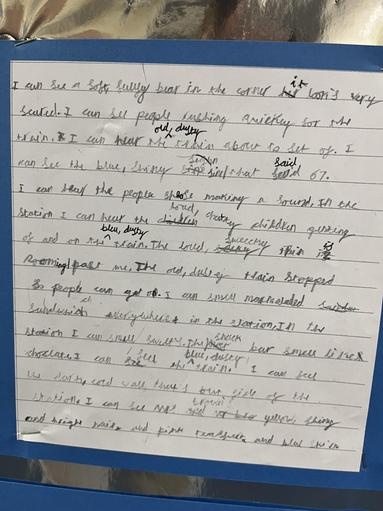 I can see a soft, fully bear in the corner it look's very
scared. I can see people rushing quickley for the
train. I can hear the old, dusty train about to set of. I
can see the blue, shiny sign that said 67.
I can hear the people shoes making a sound. In the
station I can hear the loud, chatty children geting
of and on the blue, dusty train. The loud, sweechy train is
Rooming past me. The old, dusty train stopped
so people can get on. I can smell mamaladed
sandwich everywhere in the station. In the
station I can smell sweets. The snack bar smell like
choclate. I can feel the blue, train. I can feel
the cold wall side of the
station. I can see yellow, shiny
and bright and pink and blue